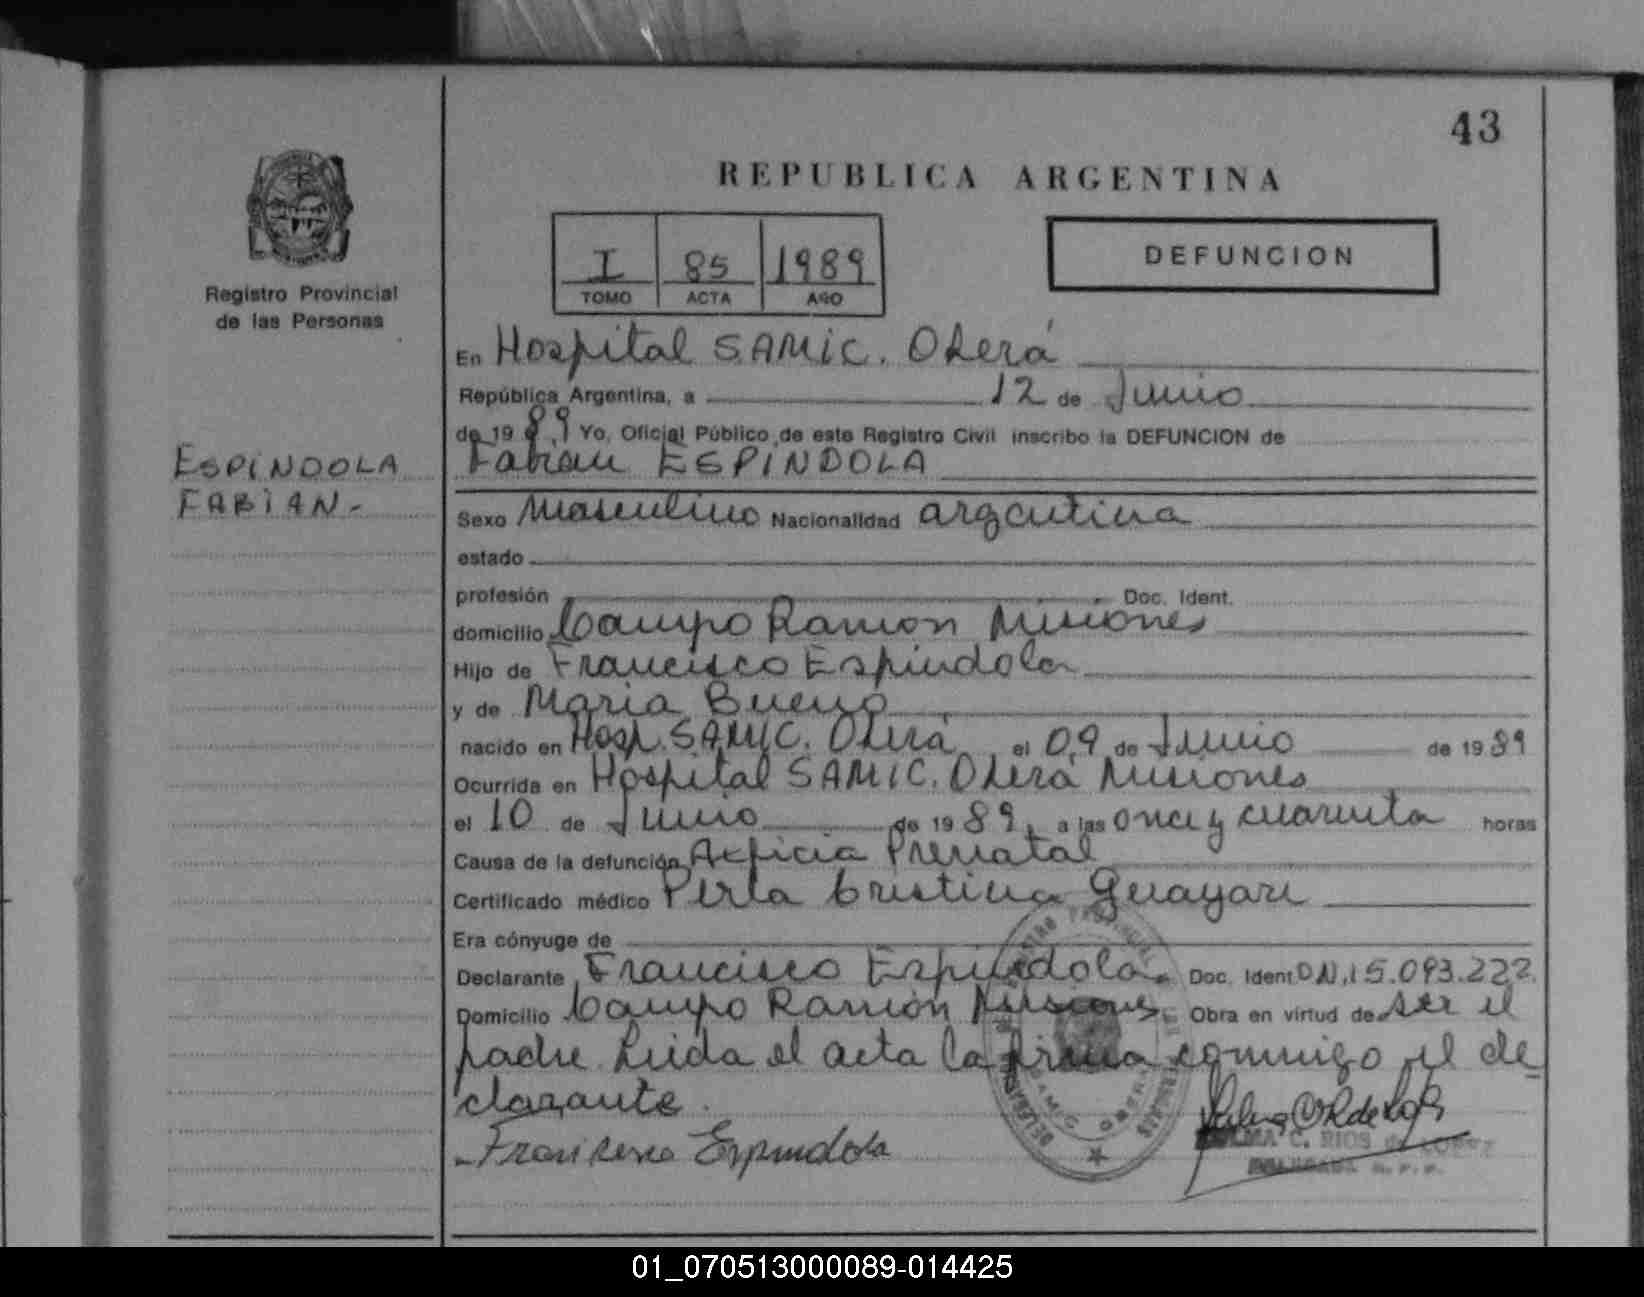 43
REPUBLICA ARGENTINA
I 85 1989
TOMO ACTA AÑO
DEFUNCION
Registro Provincial
de las Personas
ESPINDOLA
FABIAN.-
En Hospital SAMIC. Oberá
República Argentina, a 12 de Junio
de 1989, Yo, Oficial Público de este Registro Civil inscribo la DEFUNCION de
Fabian ESPINDOLA
Sexo Masculino Nacionalidad argentina
estado
profesión Doc. Ident.
domicilio Campo Ramon Misiones
Hijo de Francisco Espindola
y de Maria Bueno
nacido en Hosp. SAMIC. Oberá el 09 de Junio de 1989
Ocurrida en Hospital SAMIC. Oberá Misiones
el 10 de Junio de 1989, a las once y cuarenta horas
Causa de la defunción Prenatal
Certificado médico Perla Cristina
Era cónyuge de
Declarante Francisco Espindola. Doc. Ident. DN.15.093.222.
Domicilio Campo Ramón Misiones Obra en virtud de ser el
padre Leida el acta la firma conmigo el de
clarante.
Francisco Espindola
C. RIOS de LOPEZ
01_070513000089-014425